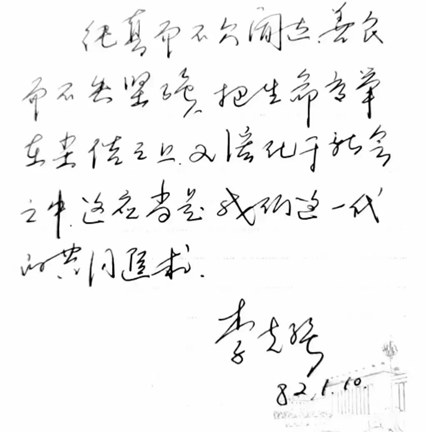 纯真而不欠阔达,善良
而不失坚强,把生命高举
在尘俗之上,又溶化于社会
之中,这应当是我们这一代
的共同追求.
李克强
82.1.10.